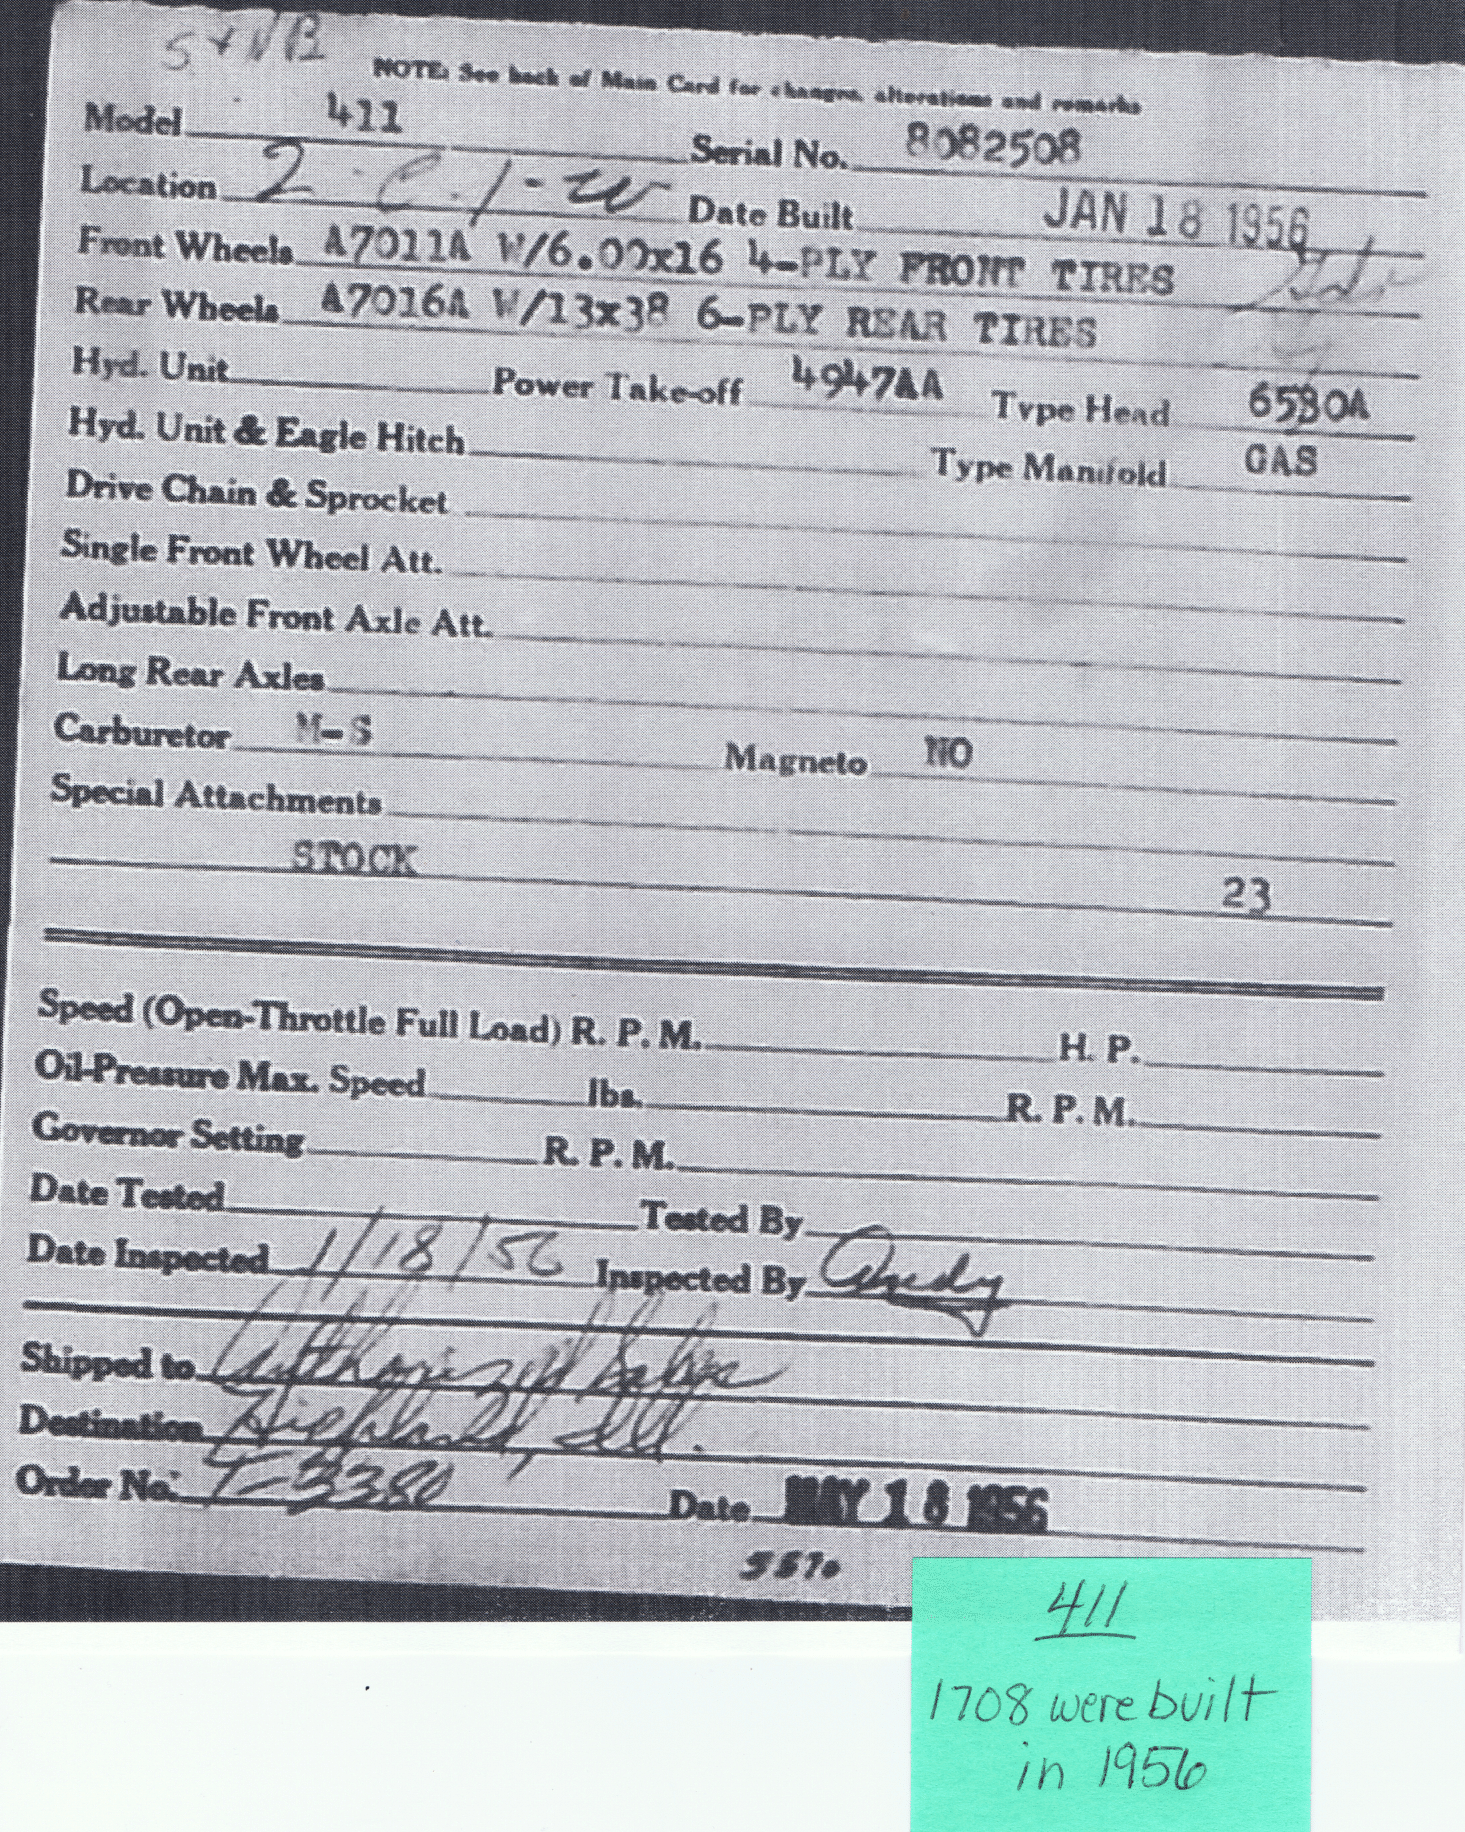 NOTE: See back of Main Card for changes, alterations and remarks
Model 411 Serial No. 8082508
Location 2 C.1-W Date Built JAN 18 1956
Front Wheels A7011A W/6.00x16 4-PLY FRONT TIRES
Rear Wheels A7016A W/13x38 6-PLY REAR TIRES
Hyd. Unit Power Take-off 4947AA Type Head 6580A
Hyd. Unit & Eagle Hitch Type Manifold GAS
Drive Chain & Sprocket
Single Front Wheel Att.
Adjustable Front Axle Att.
Long Rear Axles
Carburetor M-S Magneto NO
Special Attachments
STOCK 23
Speed (Open-Throttle Full Load) R. P. M. H. P.
Oil-Pressure Max. Speed lbs. R. P. M.
Governor Setting R. P. M.
Date Tested Tested By
Date Inspected 1/18/56 Inspected By Andy
Shipped to Authorized Sales
Destination Highland, Ill.
Order No. T-3380 Date MAY 18 1956
5570
411
1708 were built
in 1956